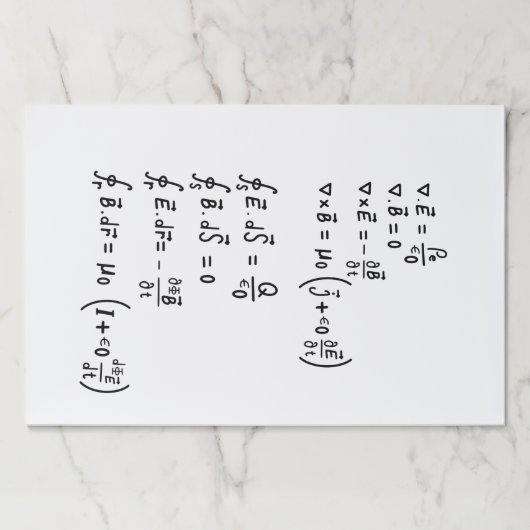 ∇.E⃗ = ρe/ϵ0
∇.B⃗ = 0
∇×E⃗ = -∂B⃗/∂t
∇×B⃗ = μ0 (j⃗ + ϵ0 ∂E⃗/∂t)
∮S E⃗.dS⃗ = Q/ϵ0
∮S B⃗.dS⃗ = 0
∮r E⃗.dr⃗ = -∂ΦB⃗/∂t
∮r B⃗.dr⃗ = μ0 (I + ϵ0 dΦE⃗/dt)